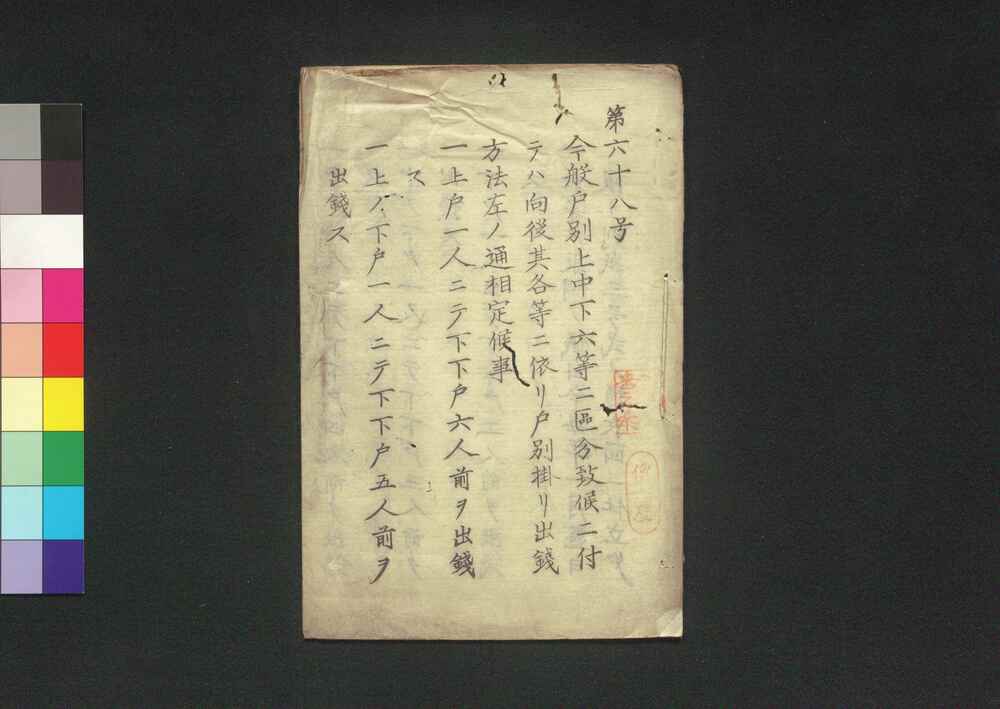 第六十八号
今般戸別上中下六等ニ區分致候ニ付
テハ向後其各等ニ依リ戸別掛リ出錢
方法左ノ通相定候事
一上戸一人ニテ下下戸六人前ヲ出錢
ス
一上ノ下戸一人ニテ下下戸五人前ヲ
出錢ス